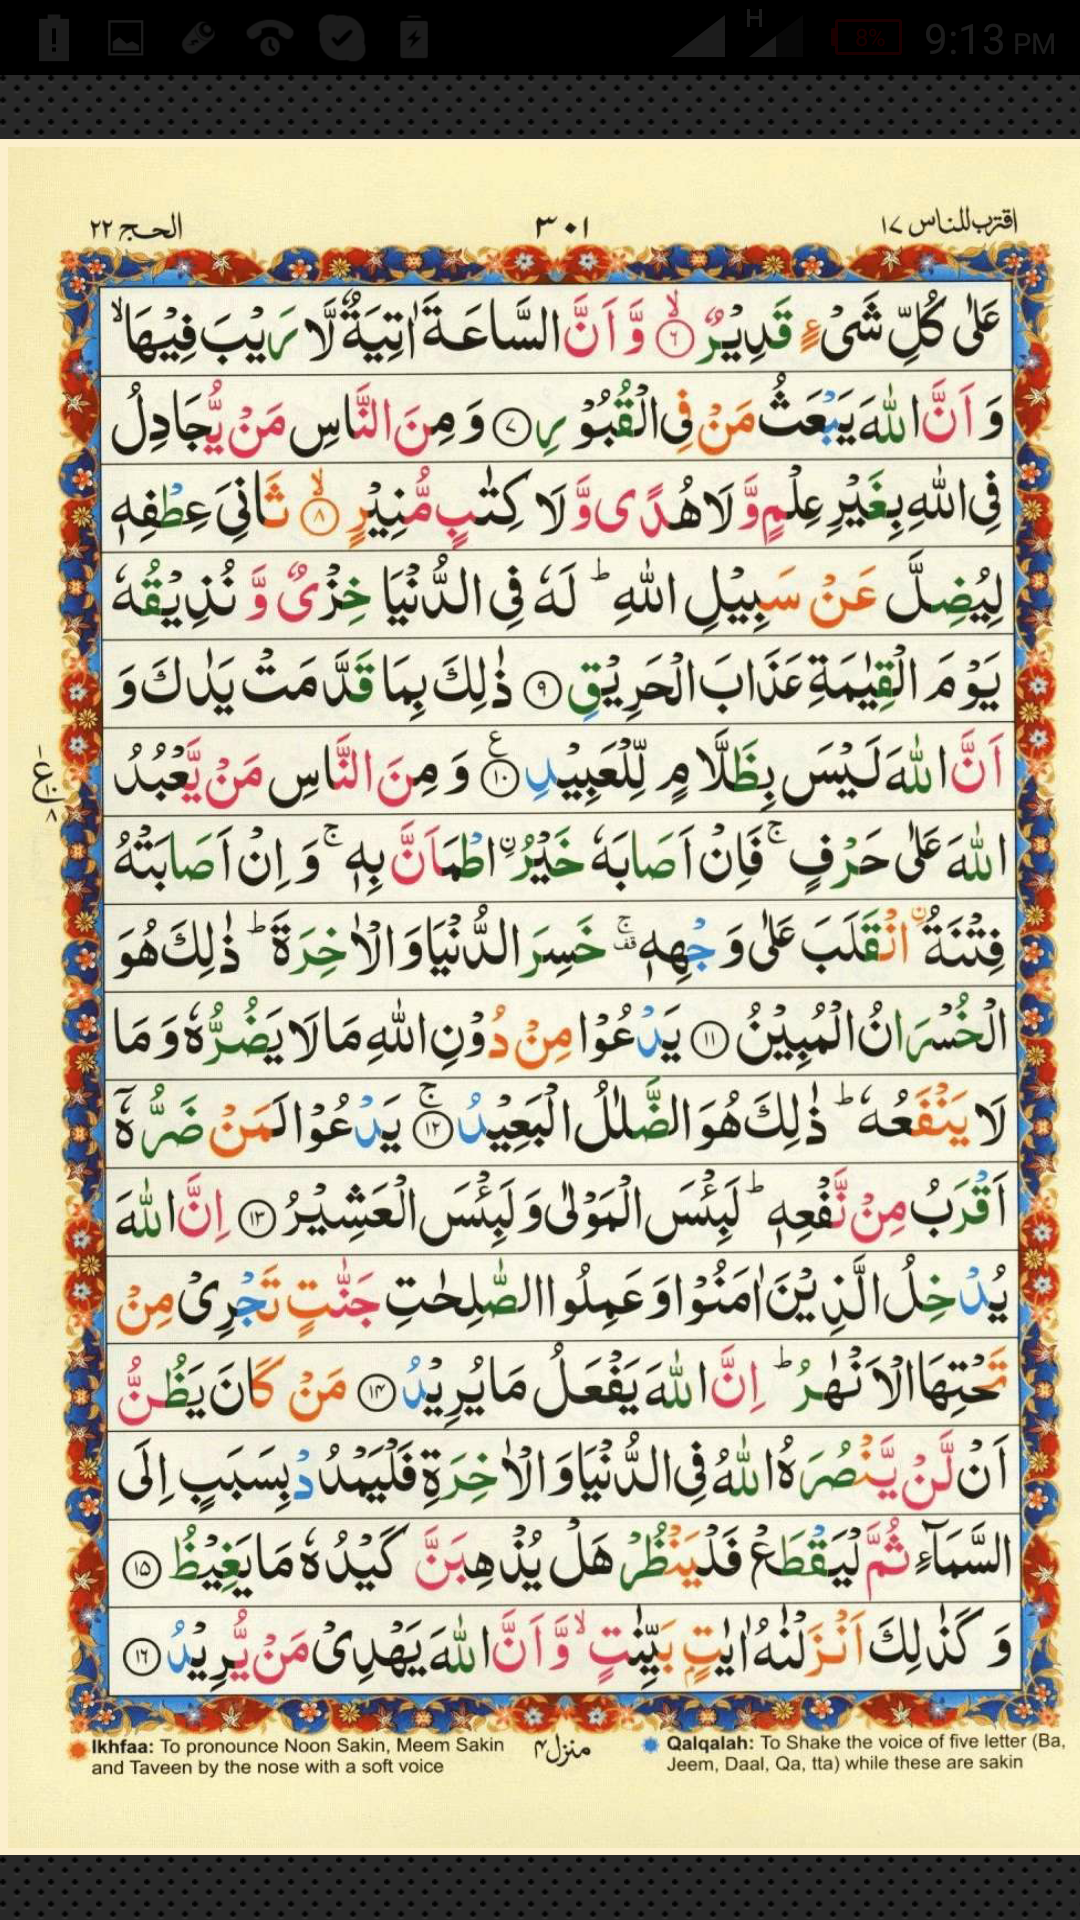 H 8% 9:13 PM
اقترب للناس ١٧ ٣٠١ الحج ٢٢
عَلٰى كُلِّ شَیْءٍ قَدِیْرٌ ۙ‏﴿۶﴾ وَّ اَنَّ السَّاعَةَ اٰتِیَةٌ لَّا رَیْبَ فِیْهَا ۙ
وَ اَنَّ اللّٰهَ یَبْعَثُ مَنْ فِی الْقُبُوْرِ ﴿۷﴾ وَ مِنَ النَّاسِ مَنْ یُّجَادِلُ
فِی اللّٰهِ بِغَیْرِ عِلْمٍ وَّ لَا هُدًی وَّ لَا كِتٰبٍ مُّنِیْرٍ ۙ﴿۸﴾ ثَانِیَ عِطْفِهٖ
لِیُضِلَّ عَنْ سَبِیْلِ اللّٰهِ ؕ لَهٗ فِی الدُّنْیَا خِزْیٌ وَّ نُذِیْقُهٗ
یَوْمَ الْقِیٰمَةِ عَذَابَ الْحَرِیْقِ ﴿۹﴾ ذٰلِكَ بِمَا قَدَّمَتْ یَدٰكَ وَ
اَنَّ اللّٰهَ لَیْسَ بِظَلَّامٍ لِّلْعَبِیْدِ ﴿۱۰﴾ ع وَ مِنَ النَّاسِ مَنْ یَّعْبُدُ
١ ع ١٠ ٨
اللّٰهَ عَلٰى حَرْفٍ ۚ فَاِنْ اَصَابَهٗ خَیْرُ ۨ اطْمَاَنَّ بِهٖ ۚ وَ اِنْ اَصَابَتْهُ
فِتْنَةُ ۨ انْقَلَبَ عَلٰى وَجْهِهٖ ۚ قف خَسِرَ الدُّنْیَا وَ الْاٰخِرَةَ ؕ ذٰلِكَ هُوَ
الْخُسْرَانُ الْمُبِیْنُ ﴿۱۱﴾ یَدْعُوْا مِنْ دُوْنِ اللّٰهِ مَا لَا یَضُرُّهٗ وَ مَا
لَا یَنْفَعُهٗ ؕ ذٰلِكَ هُوَ الضَّلٰلُ الْبَعِیْدُ ۚ﴿۱۲﴾ یَدْعُوْا لَمَنْ ضَرُّهٗۤ
اَقْرَبُ مِنْ نَّفْعِهٖ ؕ لَبِئْسَ الْمَوْلٰى وَ لَبِئْسَ الْعَشِیْرُ ﴿۱۳﴾ اِنَّ اللّٰهَ
یُدْخِلُ الَّذِیْنَ اٰمَنُوْا وَ عَمِلُوا الصّٰلِحٰتِ جَنّٰتٍ تَجْرِیْ مِنْ
تَحْتِهَا الْاَنْهٰرُ ؕ اِنَّ اللّٰهَ یَفْعَلُ مَا یُرِیْدُ ﴿۱۴﴾ مَنْ كَانَ یَظُنُّ
اَنْ لَّنْ یَّنْصُرَهُ اللّٰهُ فِی الدُّنْیَا وَ الْاٰخِرَةِ فَلْیَمْدُدْ بِسَبَبٍ اِلَى
السَّمَآءِ ثُمَّ لْیَقْطَعْ فَلْیَنْظُرْ هَلْ یُذْهِبَنَّ كَیْدُهٗ مَا یَغِیْظُ ﴿۱۵﴾
وَ كَذٰلِكَ اَنْزَلْنٰهُ اٰیٰتٍ بَیِّنٰتٍ ۙ وَّ اَنَّ اللّٰهَ یَهْدِیْ مَنْ یُّرِیْدُ ﴿۱۶﴾
منزل ۴
Ikhfaa: To pronounce Noon Sakin, Meem Sakin
and Taveen by the nose with a soft voice
Qalqalah: To Shake the voice of five letter (Ba,
Jeem, Daal, Qa, tta) while these are sakin